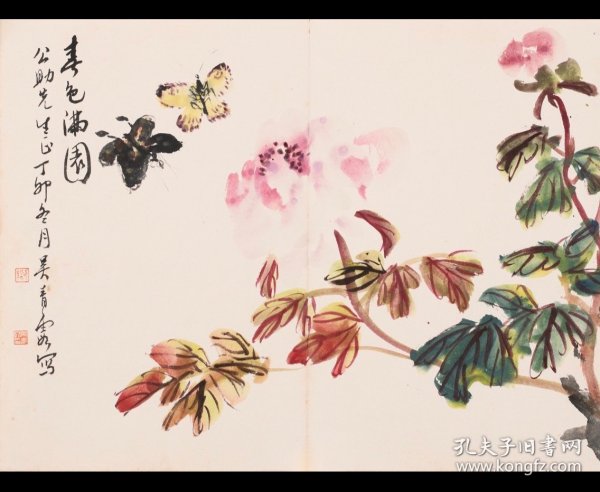 春色满園
公助先生正丁卯冬月吴青霞写
孔夫子旧书网
www.kongfz.com